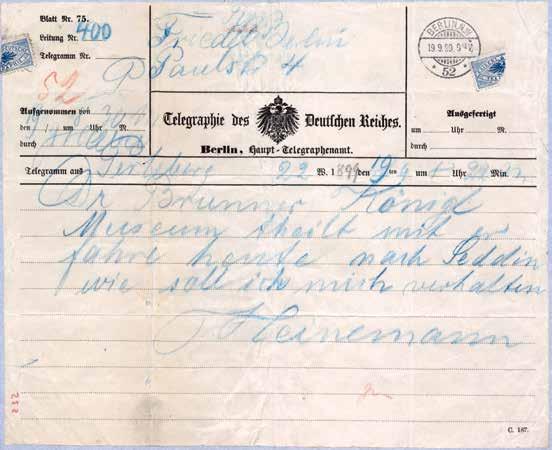 Blatt Nr. 75.
Leitung Nr. 400
Telegramm Nr.
Friedel Berlin
Paulstr 4
52
BERLIN, N.W.
19.9.99.
* 52 *
Aufgenommen von
den / um Uhr M.
durch
Telegraphie des Deutschen Reiches.
Berlin, Haupt-Telegraphenamt.
Ausgefertigt
um Uhr M.
durch
Telegramm aus Perleberg 22 W. 1899 den 19ten um Uhr Min.
Dr Brunner Königl
Museum theilt mit er
fahre heute nach Seddin
wie soll ich mich verhalten
Heinemann
C. 187.